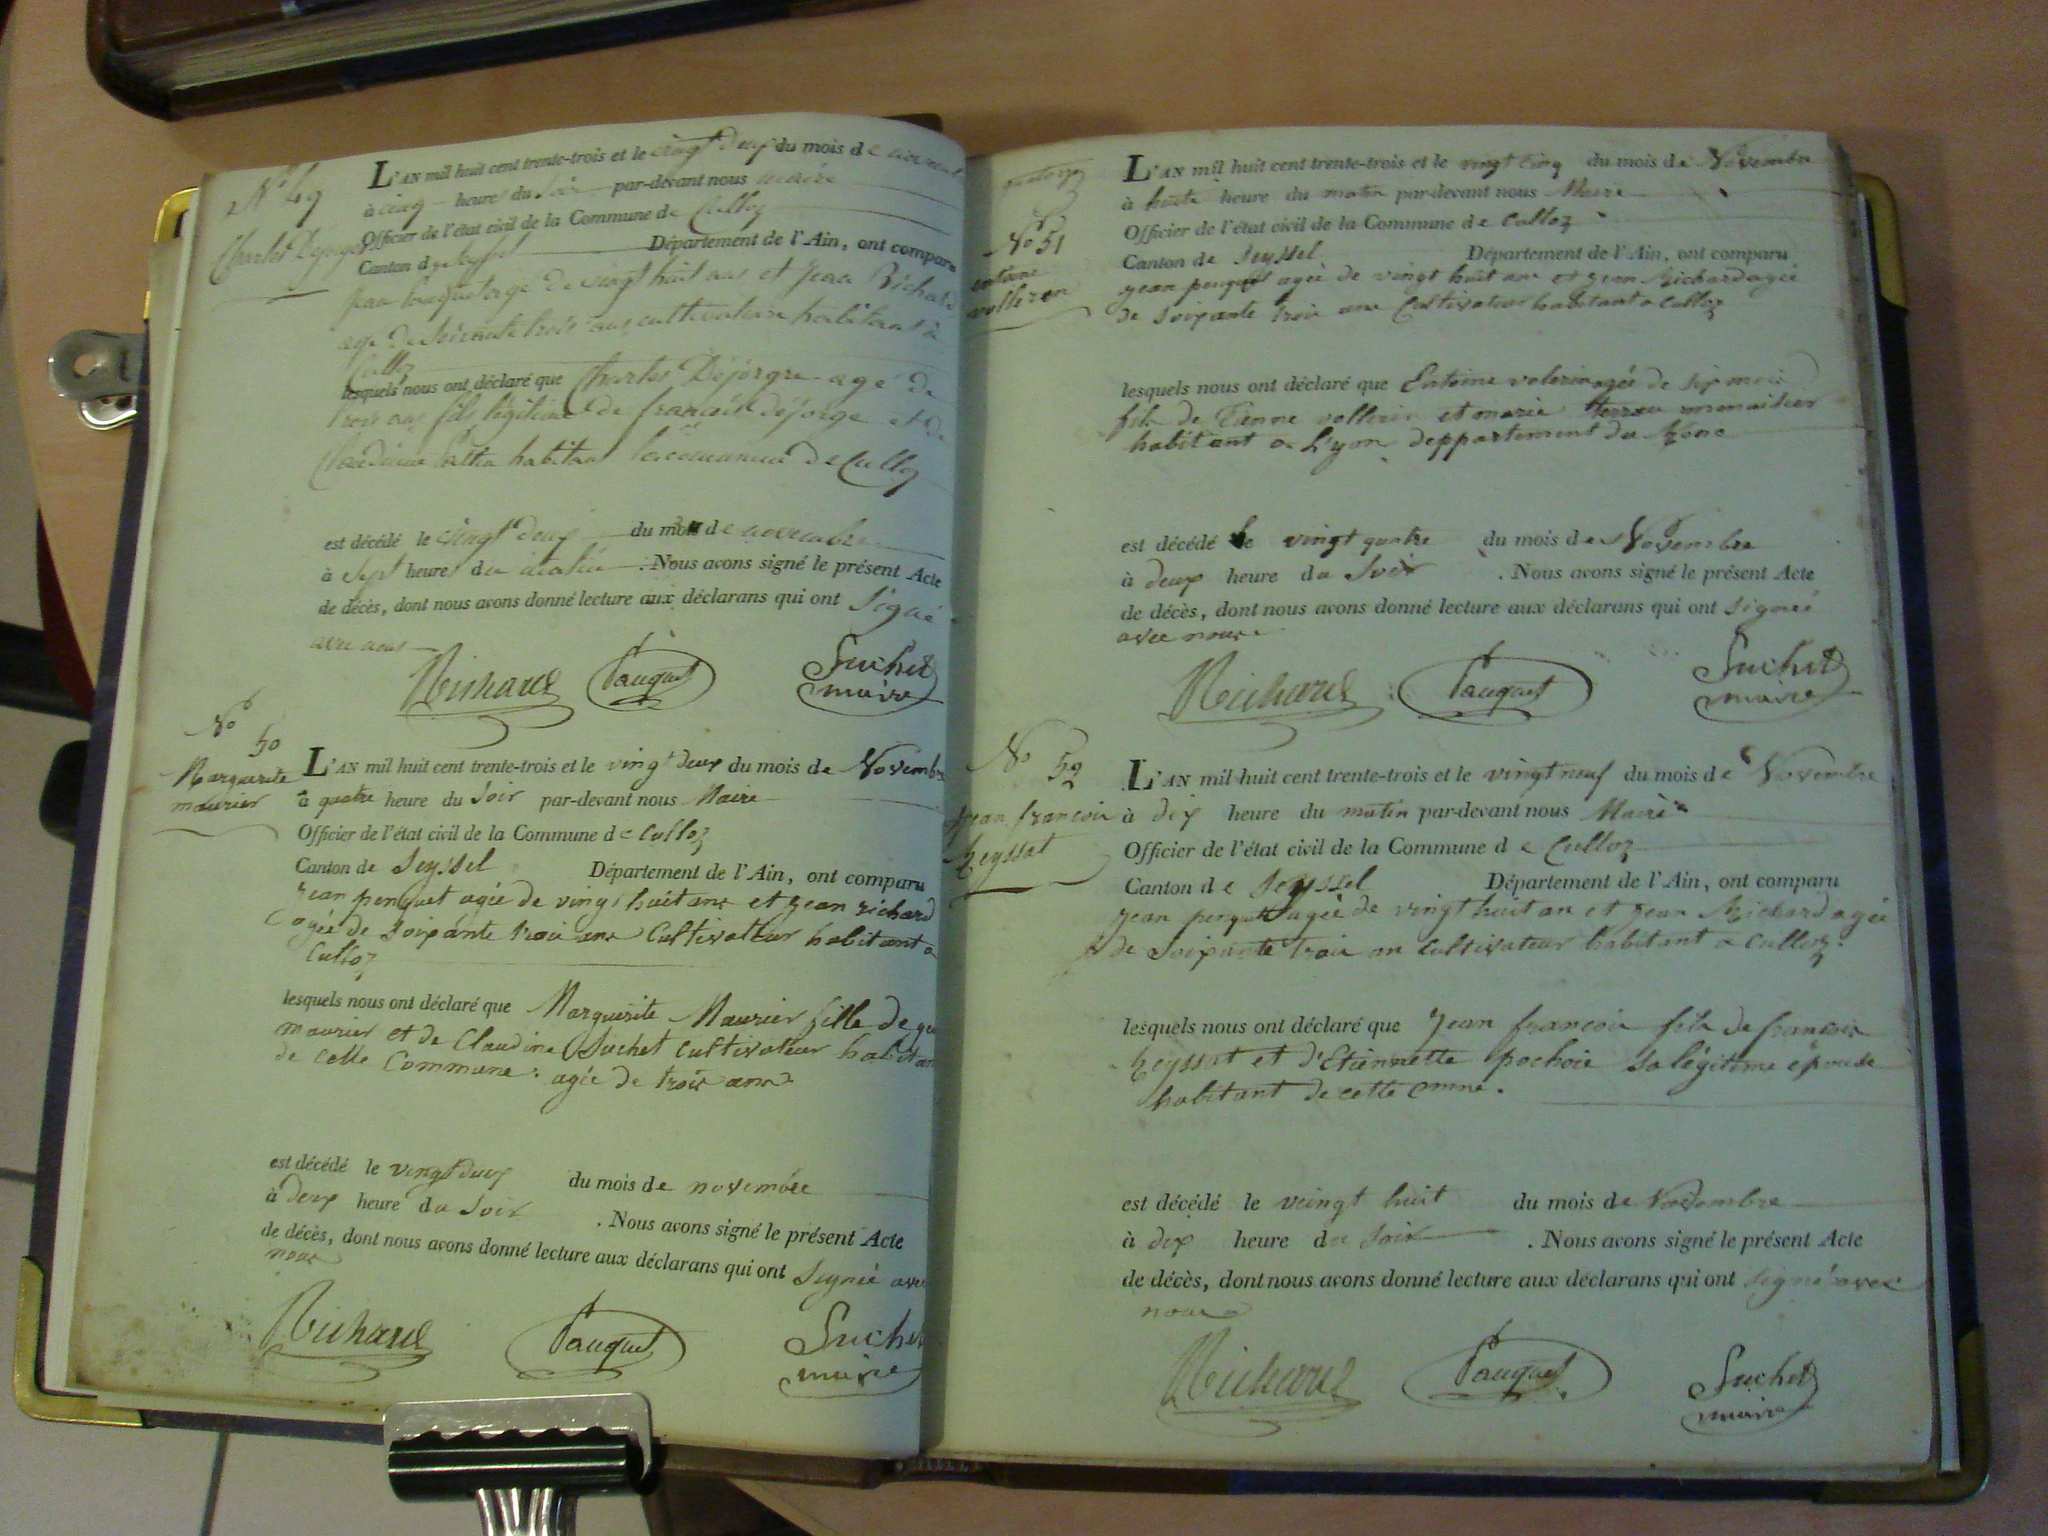 N° 49
Charles Dejorge
L'AN mil huit cent trente-trois et le vingt deux du mois de novembre
à cinq heure du soir par-devant nous maire
Officier de l'état civil de la Commune de Culloz
Canton de Seyssel Département de l'Ain, ont comparu
age de vingt huit ans et jean Richard
age de soixante trois ans cultivateur habitant à
Culloz
lesquels nous ont déclaré que Charles Dejorge agé de
trois ans fils légitime de françois dejorge et de
Claudine habitant la commune de Culloz
est décédé le vingt deux du mois de novembre
à sept heures du matin . Nous avons signé le présent Acte
de décès, dont nous avons donné lecture aux déclarans qui ont signé
avec nous
Richard Pauquet Suchet
maire
N°
50
Marguerite
maurier
L'AN mil huit cent trente-trois et le vingt deux du mois de Novembre
à quatre heure du soir par-devant nous Maire
Officier de l'état civil de la Commune de Culloz
Canton de Seyssel Département de l'Ain, ont comparu
jean penquet agée de vingt huit ans et jean richard
agée de soixante trois ans Cultivateur habitant a
Culloz
lesquels nous ont déclaré que Marguerite Maurier fille de
maurier et de Claudine Suchet cultivateur habitant
de cette Commune. agée de trois ans
est décédé le vingt deux du mois de novembre
à deux heure du soir . Nous avons signé le présent Acte
de décès, dont nous avons donné lecture aux déclarans qui ont signée avec
nous
Richard Pauquet Suchet
maire
quatorze
N° 51
antoine
volleren
L'AN mil huit cent trente-trois et le vingt cinq du mois de Novembre
à huite heure du matin par-devant nous Maire
Officier de l'état civil de la Commune de Culloz
Canton de Seyssel Département de l'Ain, ont comparu
jean penquet agée de vingt huit an et jean Richard agée
de soixante trois ans Cultivateur habitant a Culloz
lesquels nous ont déclaré que Entoine volerin agée de six mois
fils de Tienne vollerin et marie
habitant a Lyon deppartement du Rone
est décédé le vingt quatre du mois de Novembre
à deux heure du soir . Nous avons signé le présent Acte
de décès, dont nous avons donné lecture aux déclarans qui ont signée
avec nous
Richard Pauquet Suchet
maire
N° 52
jean francois
Heyssat
L'AN mil huit cent trente-trois et le vingt neuf du mois de Novembre
à dix heure du matin par-devant nous Maire
Officier de l'état civil de la Commune de Culloz
Canton de Seyssel Département de l'Ain, ont comparu
jean penquet agée de vingt huit an et jean Richard agée
de soixante trois an cultivateur habitant a Culloz.
lesquels nous ont déclaré que jean francois fils de francois
Heyssat et d'Etiennette pochoie sa légitime épouse
habitant de cette comne.
est décédé le veingt huit du mois de Novembre
à dix heure du soir . Nous avons signé le présent Acte
de décès, dont nous avons donné lecture aux déclarans qui ont signé avec
nous
Richard Pauquet Suchet
maire